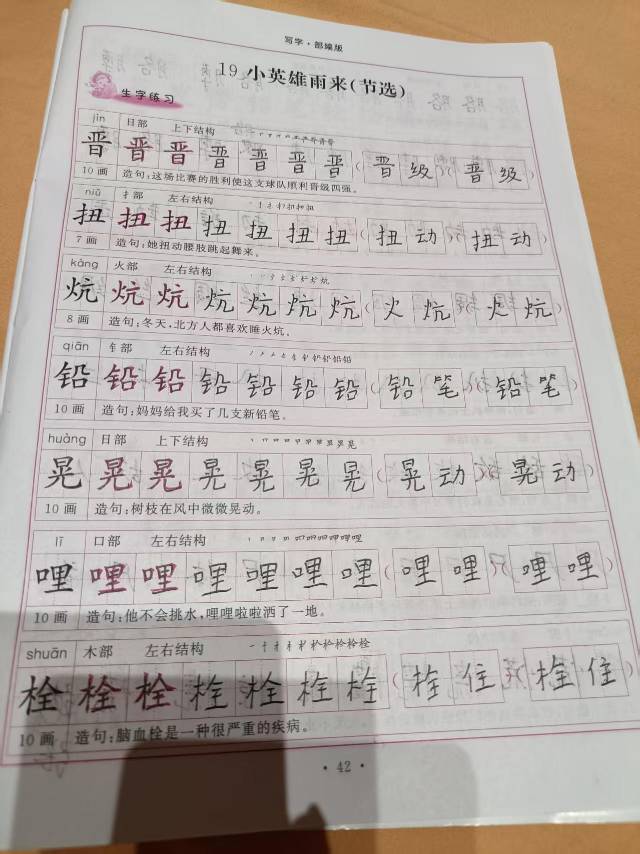 写字·部编版
19 小英雄雨来(节选)
生字练习
jìn 日部 上下结构
晋 晋 晋 晋 晋 晋 晋 (晋级)(晋级)
10画 造句:这场比赛的胜利使这支球队顺利晋级四强。
niǔ 扌部 左右结构
扭 扭 扭 扭 扭 扭 扭 (扭动)(扭动)
7画 造句:她扭动腰肢跳起舞来。
kàng 火部 左右结构
炕 炕 炕 炕 炕 炕 炕 (火炕)(火炕)
8画 造句:冬天,北方人都喜欢睡火炕。
qiān 钅部 左右结构
铅 铅 铅 铅 铅 铅 铅 (铅笔)(铅笔)
10画 造句:妈妈给我买了几支新铅笔。
huàng 日部 上下结构
晃 晃 晃 晃 晃 晃 晃 (晃动)(晃动)
10画 造句:树枝在风中微微晃动。
lī 口部 左右结构
哩 哩 哩 哩 哩 哩 哩 (哩哩)(哩哩)
10画 造句:他不会挑水,哩哩啦啦洒了一地。
shuān 木部 左右结构
栓 栓 栓 栓 栓 栓 栓 (栓住)(栓住)
10画 造句:脑血栓是一种很严重的疾病。
·42·